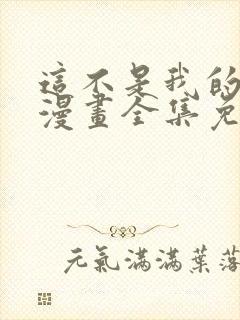 這不是我的
漫畫全集免
元氣滿滿葉落